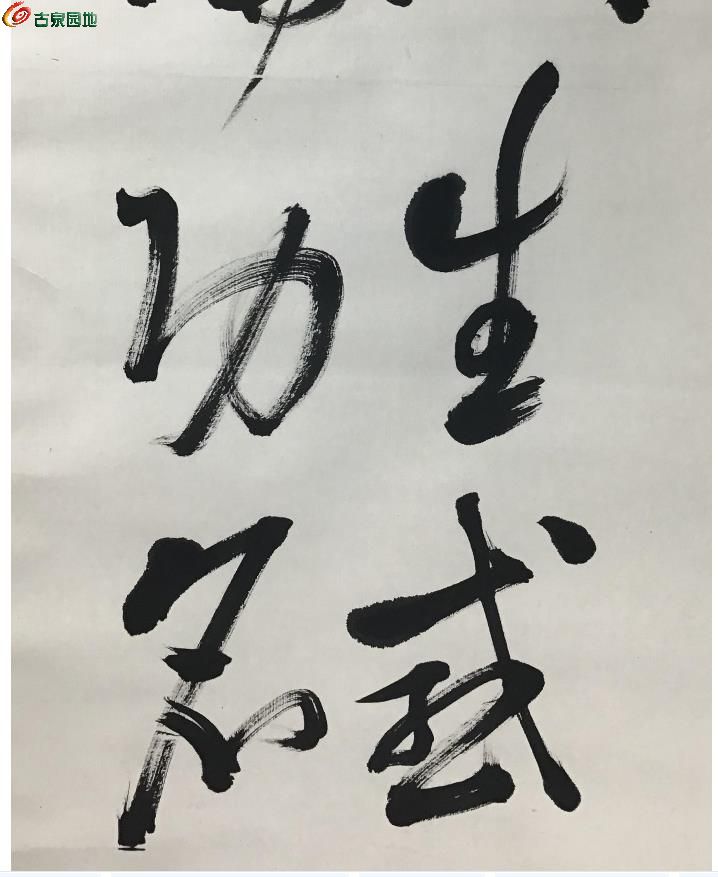 古泉园地
生感
功名